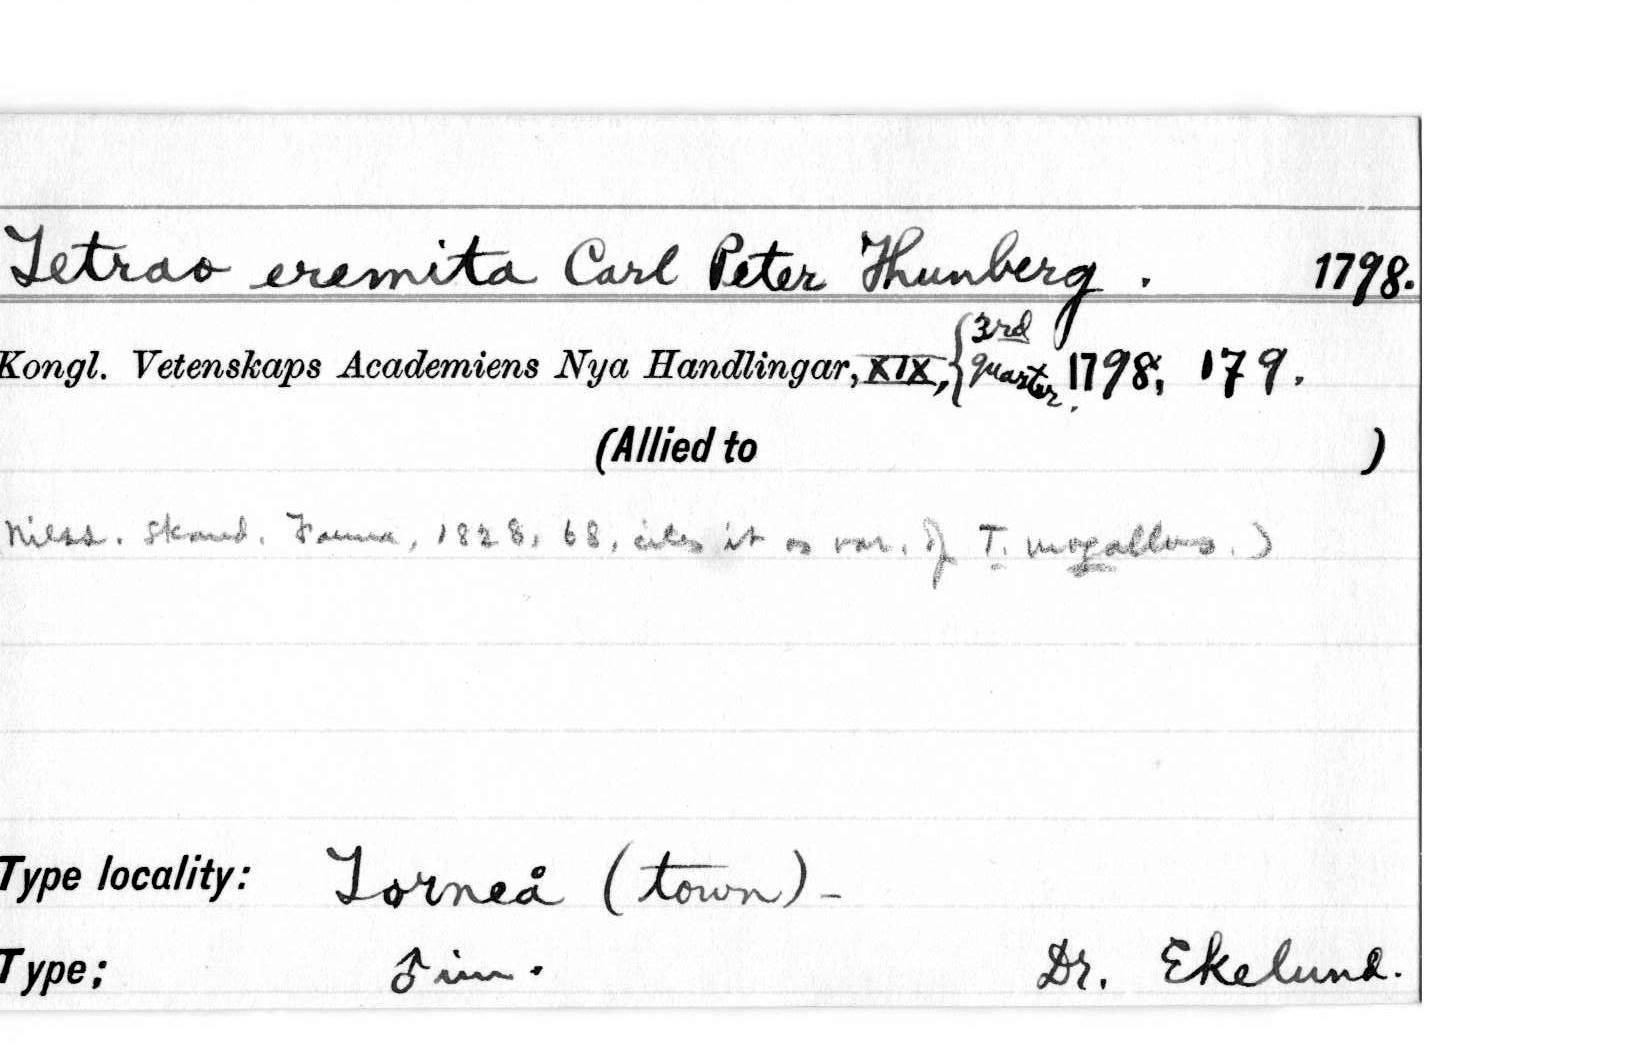 Tetrao eremita Carl Peter Thunberg . 1798.
Kongl. Vetenskaps Academiens Nya Handlingar, XIX, { 3rd quarter, 1798; 179.
(Allied to )
Nilss. Skand. Fauna, 1828, 68, cites it as var. of T. urogallus.)
Type locality: Torneå (town) -
Type; ♂ im. Dr. Ekelund.